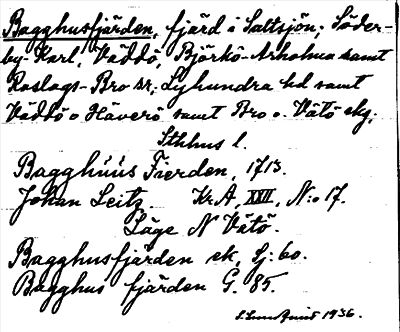 Bagghusfjärden, fjärd i Saltsjön; Söder-
by-Karl, Väddö, Björkö-Arholma samt
Roslags-Bro sr; Lyhundra hd samt
Väddö o Häverö samt Bro o. Vätö skg;
Sthhus l.
Bagghúús Fierden, 1713.
Johan Leitz. Kr.A, XXII, N:o 17.
Läge N Vätö.
Bagghusfjärden ek, Lj: 60.
Bagghus fjärden G. 85.
1936.